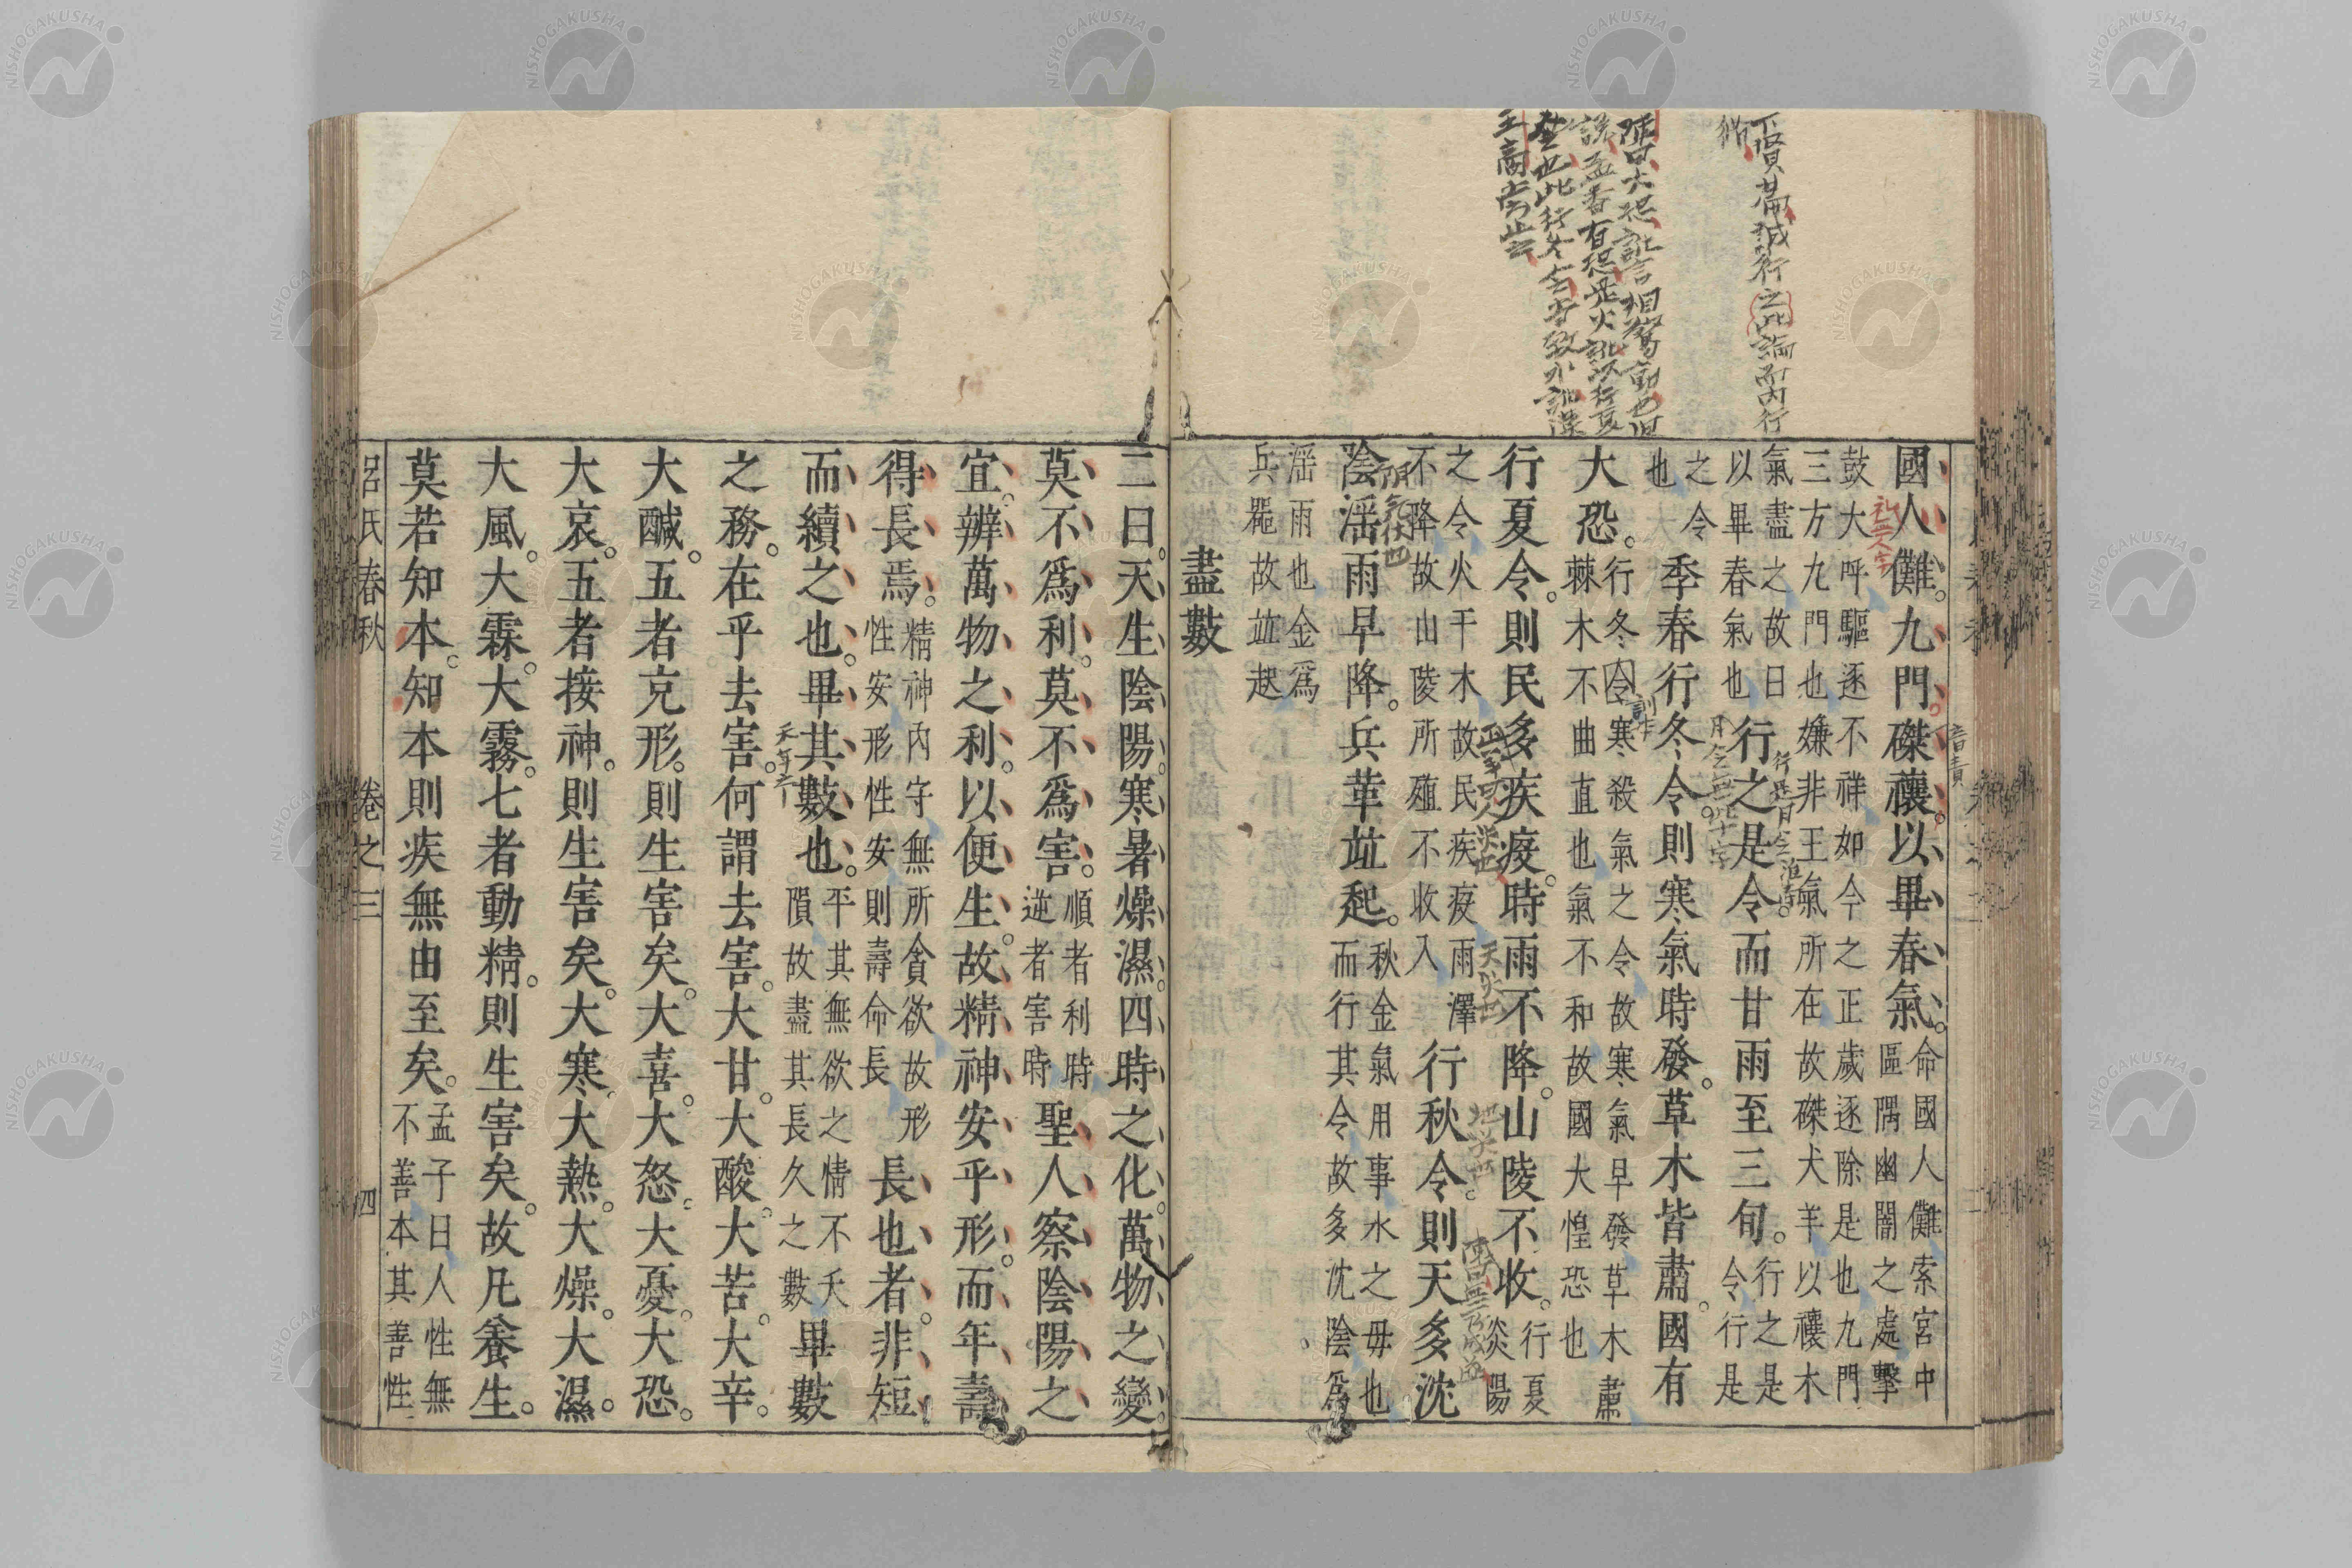 國人儺。九門磔禳。以畢春氣。命國人儺索宮中區隅幽闇之處擊
鼓大呼驅逐不祥如今之正歲逐除是也九門三方九門也嫌非王氣所在故磔犬羊以禳木
氣盡之故曰以畢春氣也行之是令。而甘雨至三旬。行之是令行是
之令也季春行冬令。則寒氣時發。草木皆肅。國有
大恐。行冬令寒殺氣之令故寒氣早發草木肅棘木不曲直也氣不和故國大惶恐也
行夏令。則民多疾疫。時雨不降。山陵不收。行夏炎陽
之令火干木故民疾疫雨澤不降故山陵所殖不收入行秋令則天多沈
陰淫雨早降。兵革竝起。秋金氣用事水之母也而行其令故多沈陰爲
淫雨也金爲兵罷故竝起
盡數
二曰。天生陰陽。寒暑燥濕。四時之化。萬物之變。
莫不爲利。莫不爲害。順者利時逆者害時聖人察陰陽之
宜。辨萬物之利。以便生。故精神安乎形。而年壽
得長焉。精神內守無所貪欲故形性安形性安則壽命長長也者。非短
而續之也。畢其數也。平其無欲之情不夭隕故盡其長久之數畢數
之務。在乎去害。何謂去害。大甘。大酸。大苦。大辛。
大鹹。五者充形。則生害矣。大喜。大怒。大憂。大恐。
大哀。五者接神。則生害矣。大寒。大熱。大燥。大濕。
大風。大霖。大霧。七者動精。則生害矣。故凡養生。
莫若知本。知本則疾無由至矣。孟子曰人性無不善本其善性
呂氏春秋 卷之三 四